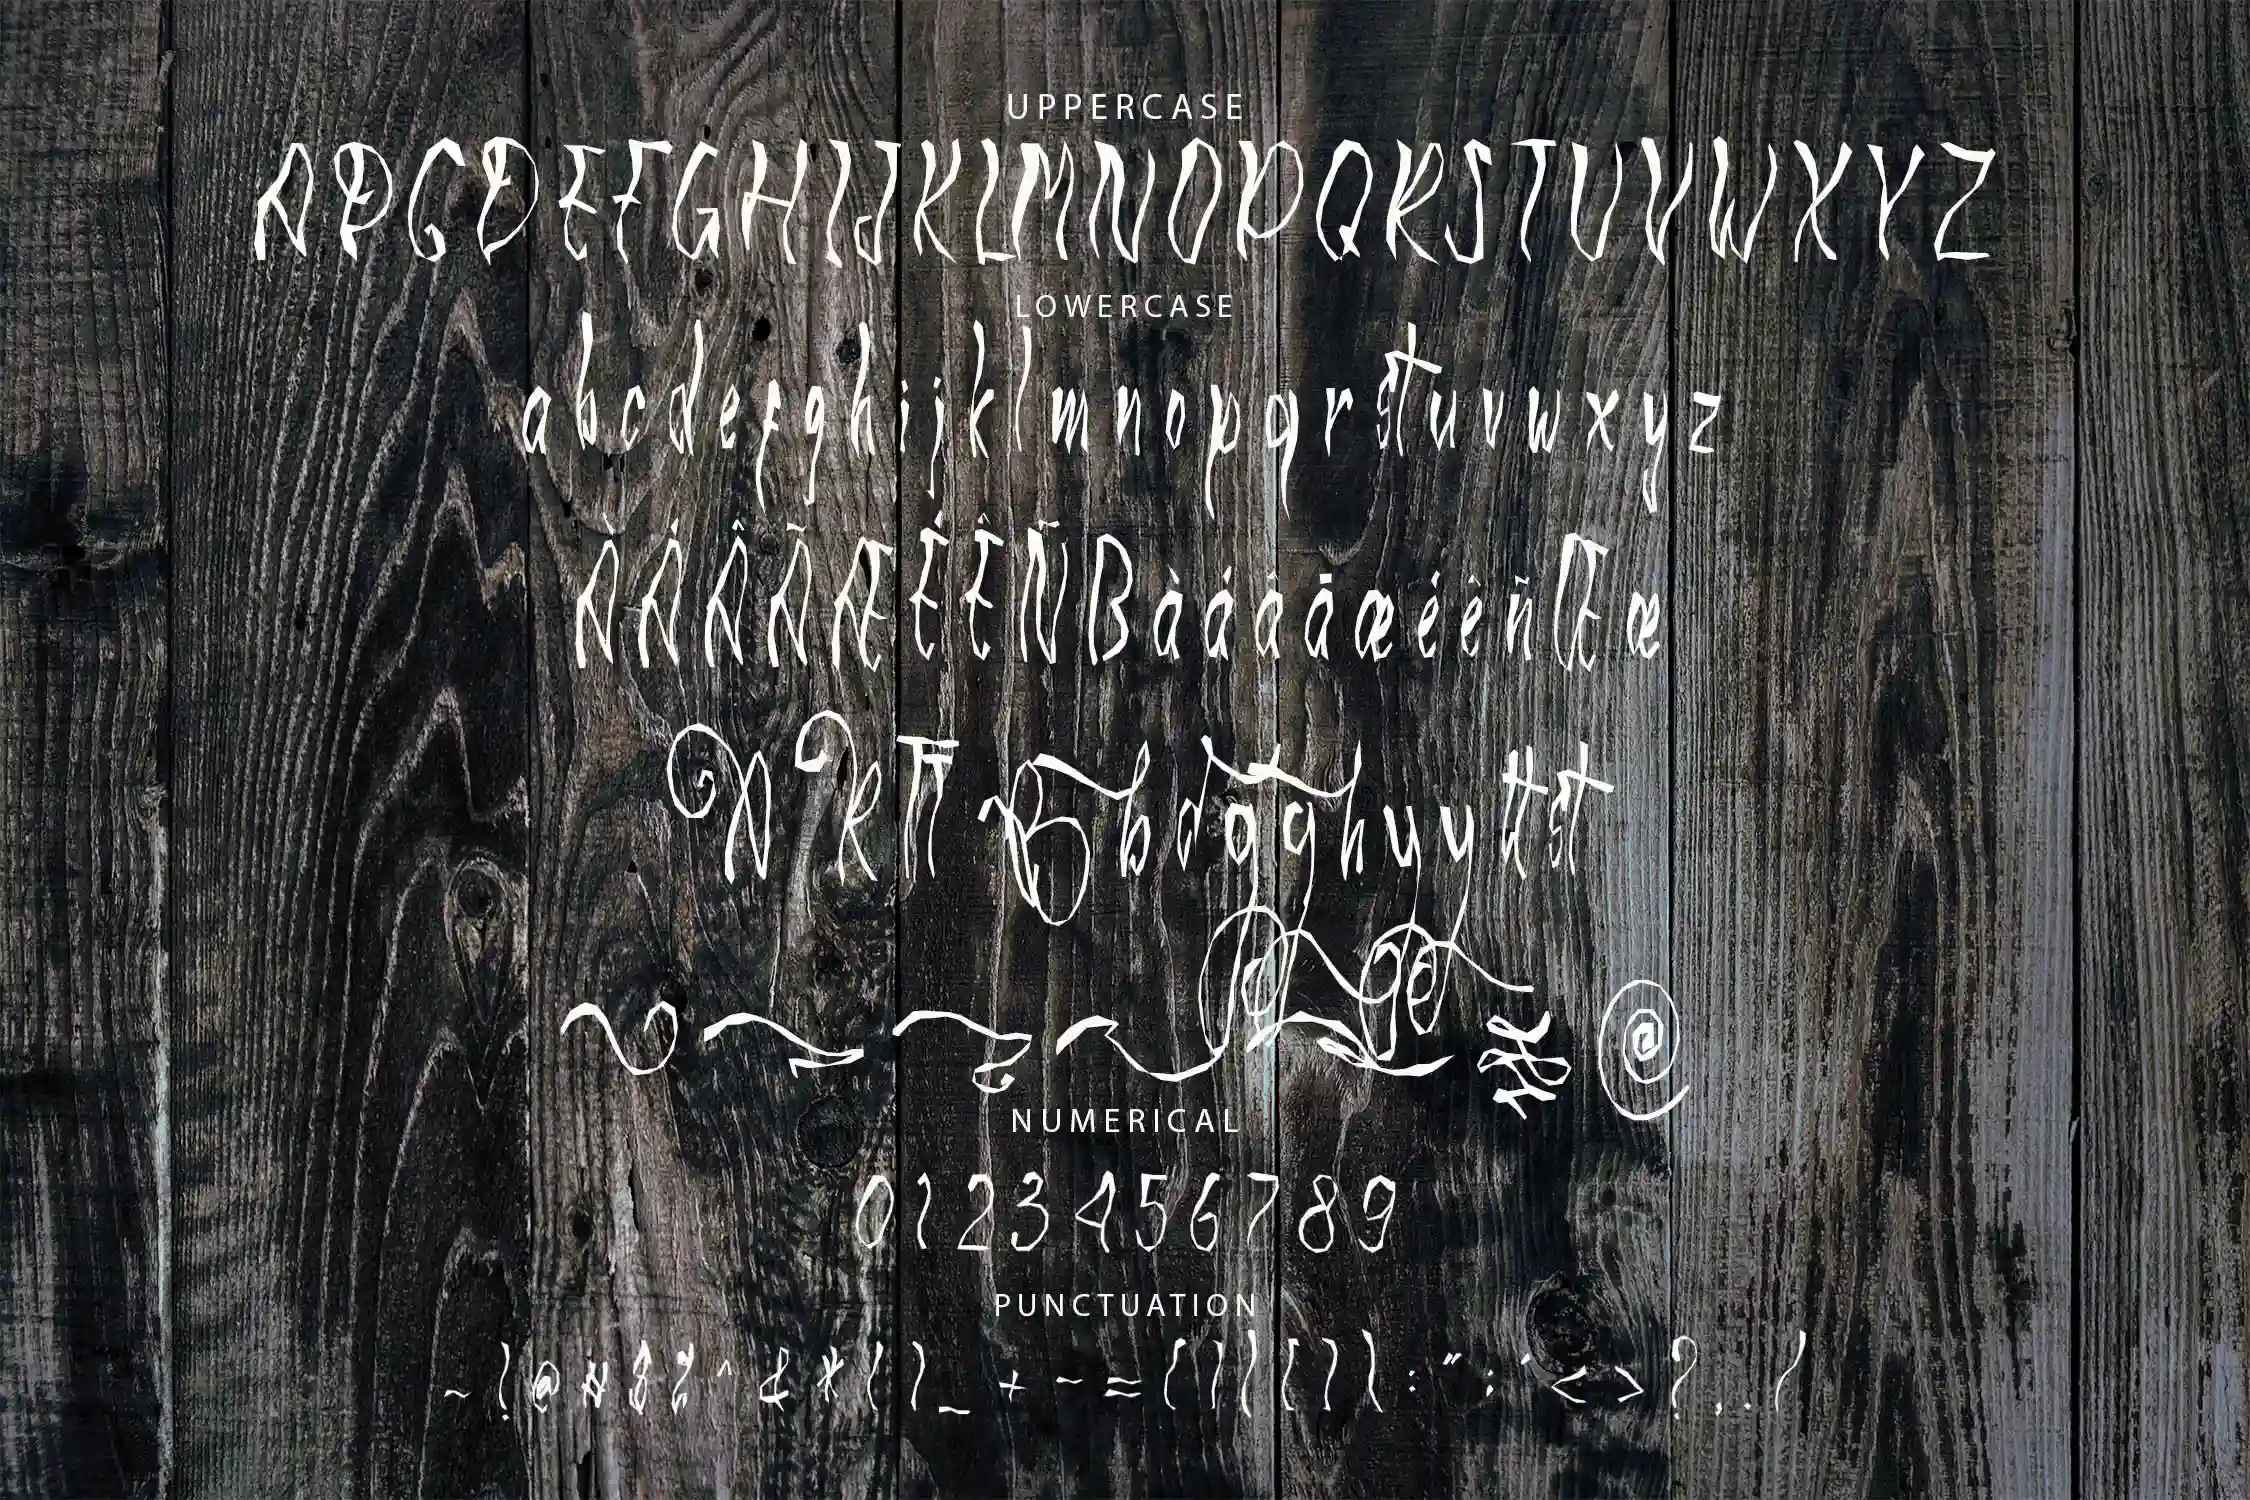 UPPERCASE
ABCDEFGHIJKLMNOPQRSTUVWXYZ
LOWERCASE
abcdefghijklmnopqrstuvwxyz
ÀÁÂÃÆÉÊÑBàáâåæéèñŒœ
A R B b d g g h y y tt st
NUMERICAL
0123456789
PUNCTUATION
~!@#$%^&*()_+-={}|[]\:";'<>?,./